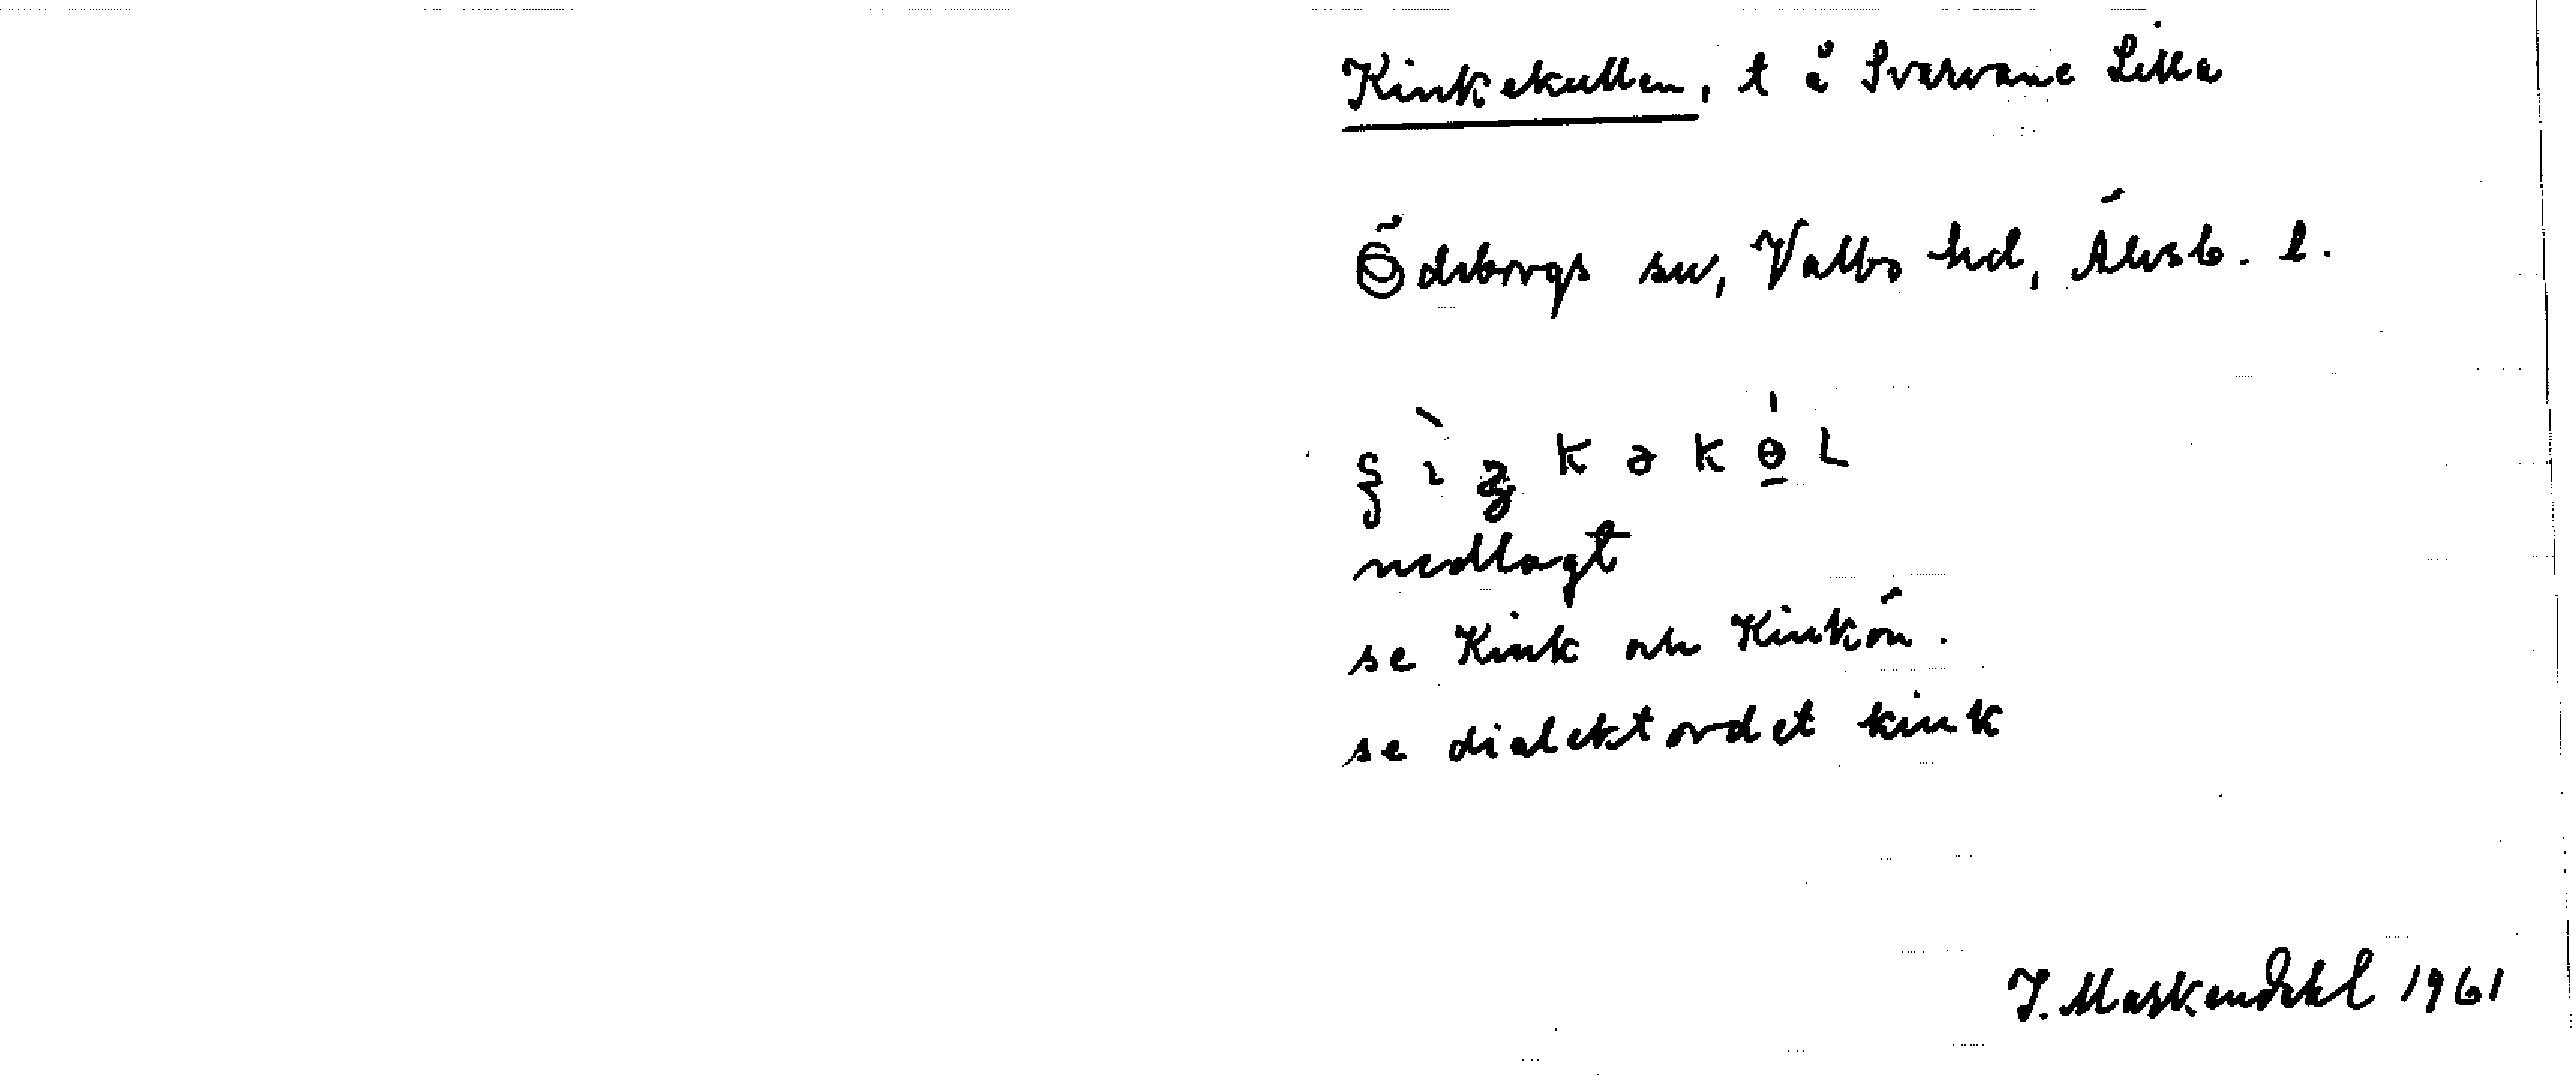 Kinkekullen, t å Svarvane Lilla
Ödeborgs sn, Valbo hd, Älvsb. l.
nedlagt
se Kink och Kinkön.
se dialektordet kink
J. Maskendahl 1961